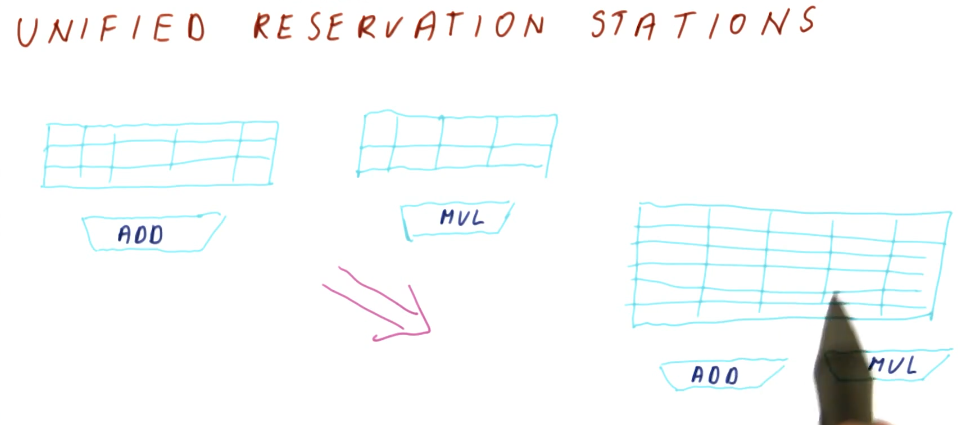 UNIFIED RESERVATION STATIONS
ADD
MUL
ADD
MUL